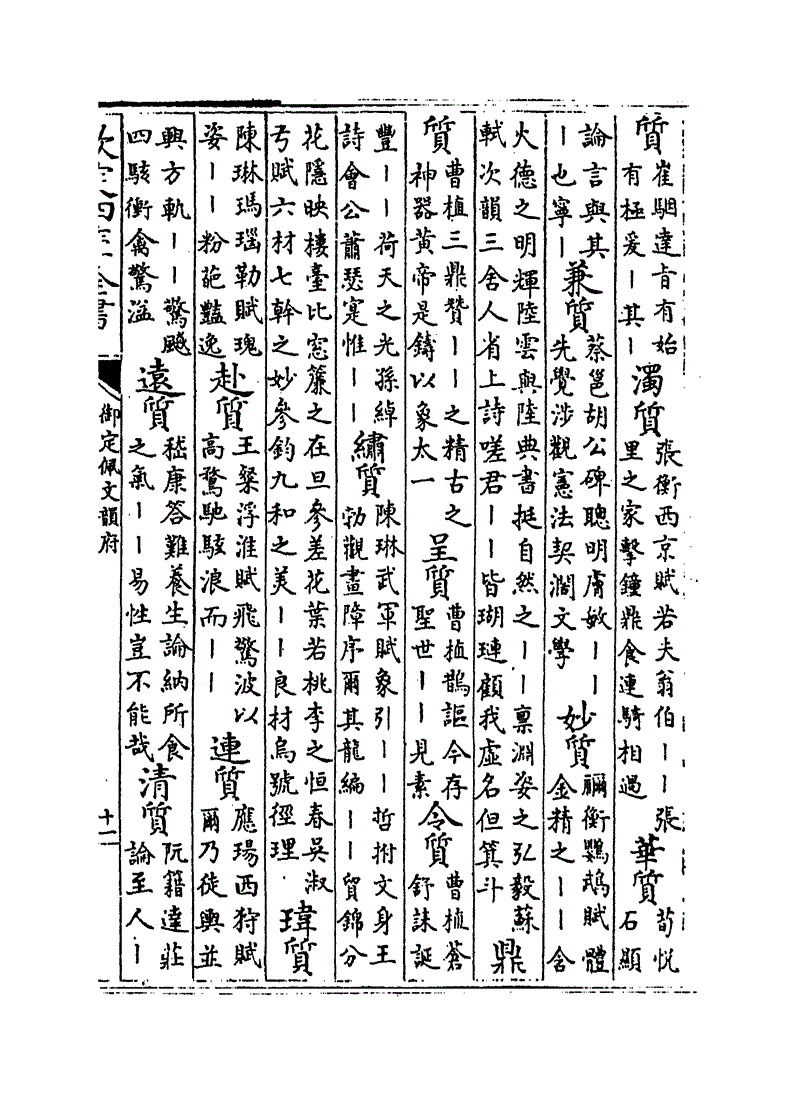 質
崔駰達旨有始
有極爰丨其丨
濁質
張衡西京賦若夫翁伯丨丨張
里之家擊鐘鼎食連騎相過
華質
荀悅
石顯
論言與其
丨也寧丨
兼質
蔡邕胡公碑聰明膚敏丨丨
先覺涉觀憲法契濶文學
妙質
禰衡鸚鵡賦體
金精之丨丨含
火德之明輝陸雲與陸典書挺自然之丨丨稟淵姿之弘毅蘇
軾次韻三舍人省上詩嗟君丨丨皆瑚璉顧我虛名但箕斗
鼎
質
曹植三鼎贊丨丨之精古之
神器黄帝是鑄以象太一
呈質
曹植鵲謳今存
聖世丨丨見素
令質
曹植蒼
舒誄誕
豐丨丨荷天之光孫綽
詩會公蕭瑟寔惟丨丨
繡質
陳琳武軍賦象引丨丨哲拊文身王
勃觀畫障序爾其龍編丨丨貿錦分
花隱映樓臺比窓簾之在旦參差花葉若桃李之恒春吳淑
弓賦六材七幹之妙參鈞九和之美丨丨良材烏號徑理
瑋質
陳琳瑪瑙勒賦瑰
姿丨丨粉葩豔逸
赴質
王粲浮淮賦飛驚波以
高騖馳駭浪而丨丨
連質
應瑒西狩賦
爾乃徒輿並
興方軌丨丨驚飈
四駭衝禽驚溢
遠質
嵇康答難養生論納所食
之氣丨丨易性豈不能哉
清質
阮籍達莊
論至人丨
欽定四庫全書
御定佩文韻府
十二